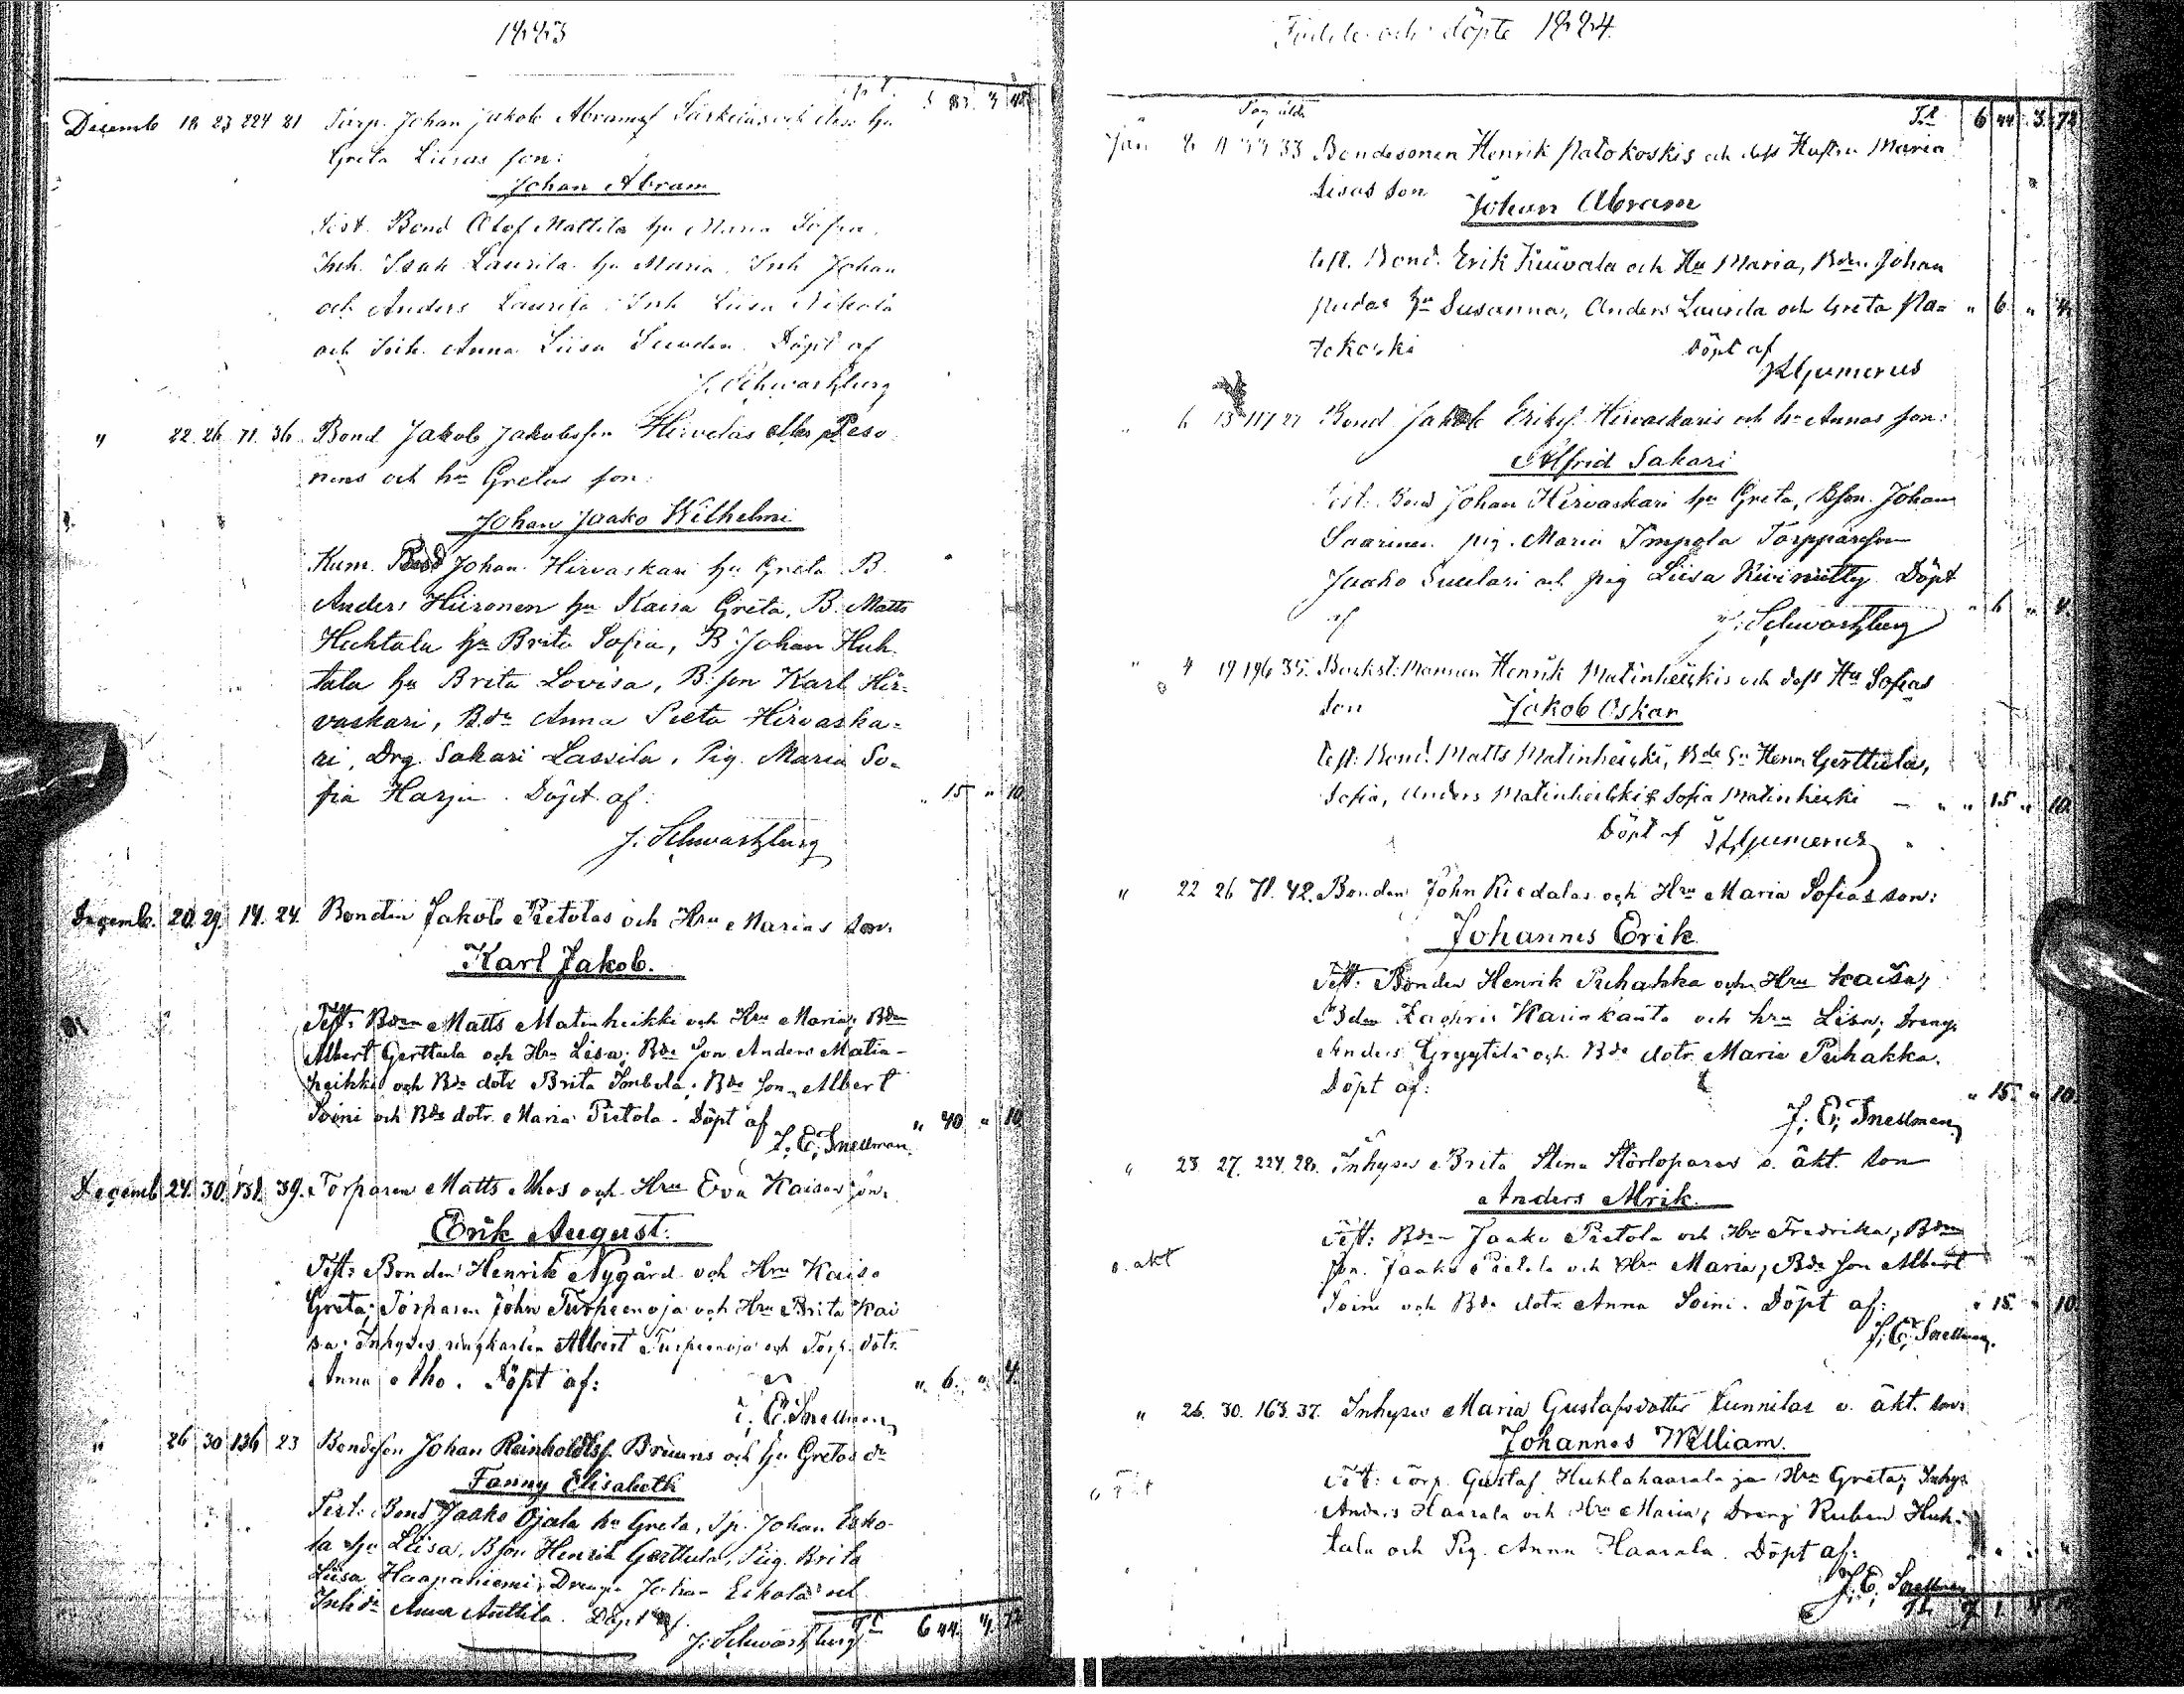 1883
Decemb 18 23 224 21 Torp. Johan Jakob Abramsf Särkelas och dess hu
Greta Liisas son:
Johan Abram
Test. Bond Olof Mattila hu Maria Sofia.
Inh. Isak Laurila hu Maria. Inh Johan
och Anders Laurila Inh Liisa Nikola
och Inh. Anna Liisa Döpt af
J. Schwartzberg
" 22. 26 71. 36 Bond Jakob Jakobsson Hirvelas eller Peso
nens och hu Gretas son:
Johan Jaako Wilhelmi
Kum. Johan Hirvaskari hu Greta B.
Anders Hiironen hu Kaisa Greta, B. Matts
Huhtala hu Brita Sofia, B. Johan Huh
tala hu Brita Lovisa, B: son Karl Hir=
vaskari, Bdr Anna Pieta Hirvaska=
ri, Drg. Sakari Lassila, Pig. Maria So=
fia Harju. Döpt af: " 15 " 10
J. Schwartzberg
Decemb. 20. 29. 14. 24. Bonden Jakob Pietolas och Hru Marias son.
Karl Jakob.
Test: Bden Matts Matinheikki och Hru Maria; Bden
Albert Gerttula och Hru Lisa; Bde son Anders Matin-
heikki och Bde dotr Brita Imbola; Bde son Albert
Soini och Bde dotr. Maria Pietola. Döpt af " 40 " 10
J. E. Snellman.
Decemb 24. 30. 131. 39. Torparen Matts Ahos och Hru Eva Kaisas son.
Erik August.
Test: Bonden Henrik Nygård och Hru Kaisa
Greta; Torparen John Turpeenoja och Hru Brita Kai
sa; Inhyses ungkarlen Albert Turpeenoja och Torp. dotr.
Anna Aho. Döpt af: " 6. " 4.
J. E. Snellman
" 26 30 136 23 Bondeson Johan Reinholdsf. Bruuns och hu Gretas dr
Fanny Elisabeth
Test: Bond Jaako Ojala hu Greta, Tp. Johan Esko
la hu Liisa, Bson Henrik Gerttula, Pig. Brita
Liisa Haapaniemi, Drengen Johan Eskola och
Inh dr Anna Anttila. Döpt af.
J. Schwartzberg Tr 6 44. 4. 72
Födde och döpte 1884.
Tr 6 44 3. 72
Jan 6 33 Bondesonen Henrik Patokoskis och dess Hustru Maria
Lisas son
Johan Abram
test. Bond. Erik Kuivala och Hu Maria, Bden Johan
Pudas hu Susanna, Anders Laurila och Greta Pa= " 6 " 4
tokoski Döpt af
JHjumerus
6 13 117 27 Bond Jakob Eriksf. Hirvaskaris och hu Annas son:
Alfrid Sakari
Test: Bond Johan Hirvaskari hu Greta, Bson. Johan
Saarinen pig. Maria Impola Torpparson
Jaako Suulari och pig Liisa Kiviniitty Döpt
af " 6 " 4.
J. Schwartzberg
" 4 19 196 35. Backst: Mannen Henrik Matinheikkis och dess Hu Sofias
son Jakob Oskar
test: Bond. Matts Matinheikki, Bde Sn Henr. Gerttula,
Sofia, Anders Matinheikki & Sofia Matinheikki — " " 15 " 10.
Döpt af JHjumerus
" 22 26 71. 42. Bonden John Riedalas och Hru Maria Sofias son:
Johannes Erik
Test: Bonden Henrik Puhakka och Hru Kaisa;
Bden Zachris Karinkanta och hru Lisa; Dreng
Anders Gryytilä och Bde dotr. Maria Puhakka.
Döpt af: " 15. " 10.
J. E. Snellman
" 23 27. 224. 28. Inhyses Brita Stina Störloparas o. äkt. son
Anders Alrik.
o. äkt
Test: Bden Jaako Pietola och Hru Fredrika; Bden
son. Jaako Pietola och Hru Maria; Bde son Albert
Soini och Bde dotr. Anna Soini. Döpt af: " 15. " 10.
J. E. Snellman.
" 26. 30. 163. 37. Inhyses Maria Gustafsdotter Kunnilas o. äkt. son.
Johannes William.
o äkt
Test: Torp. Gustaf Huhtahaarala ja Hru Greta; Inhys.
Anders Haarala och Hru Maria; Dreng Ruben Huh-
tala och Pig. Anna Haarala. Döpt af:
J. E. Snellman